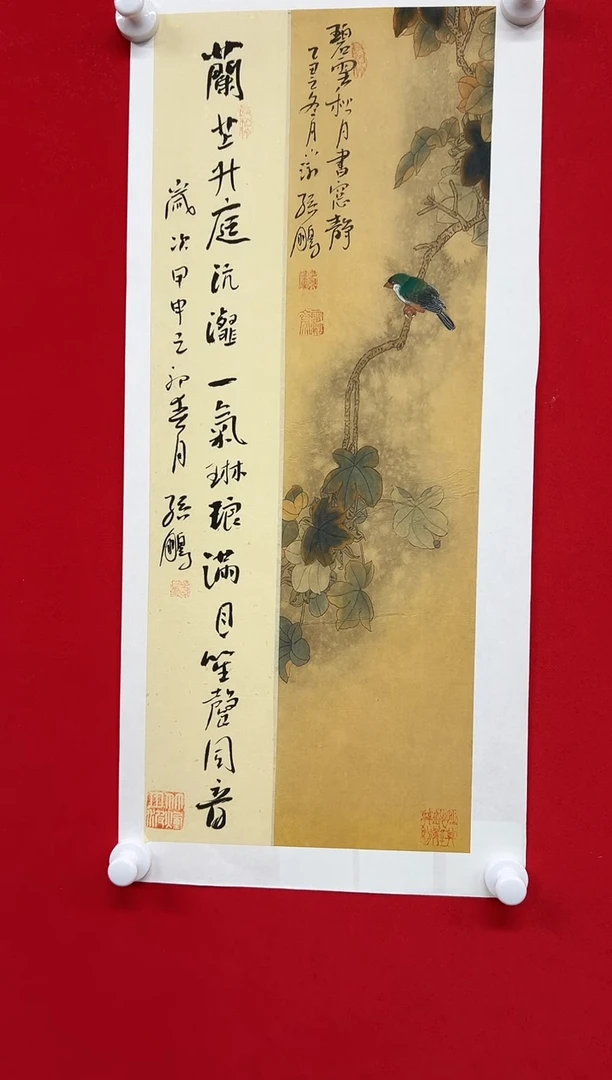 碧雲月書窓靜
乙丑之冬月 孫鵬
蘭芷升庭沆瀣一氣琳琅滿目笙磬同音
歲次甲申之初春月 孫鵬